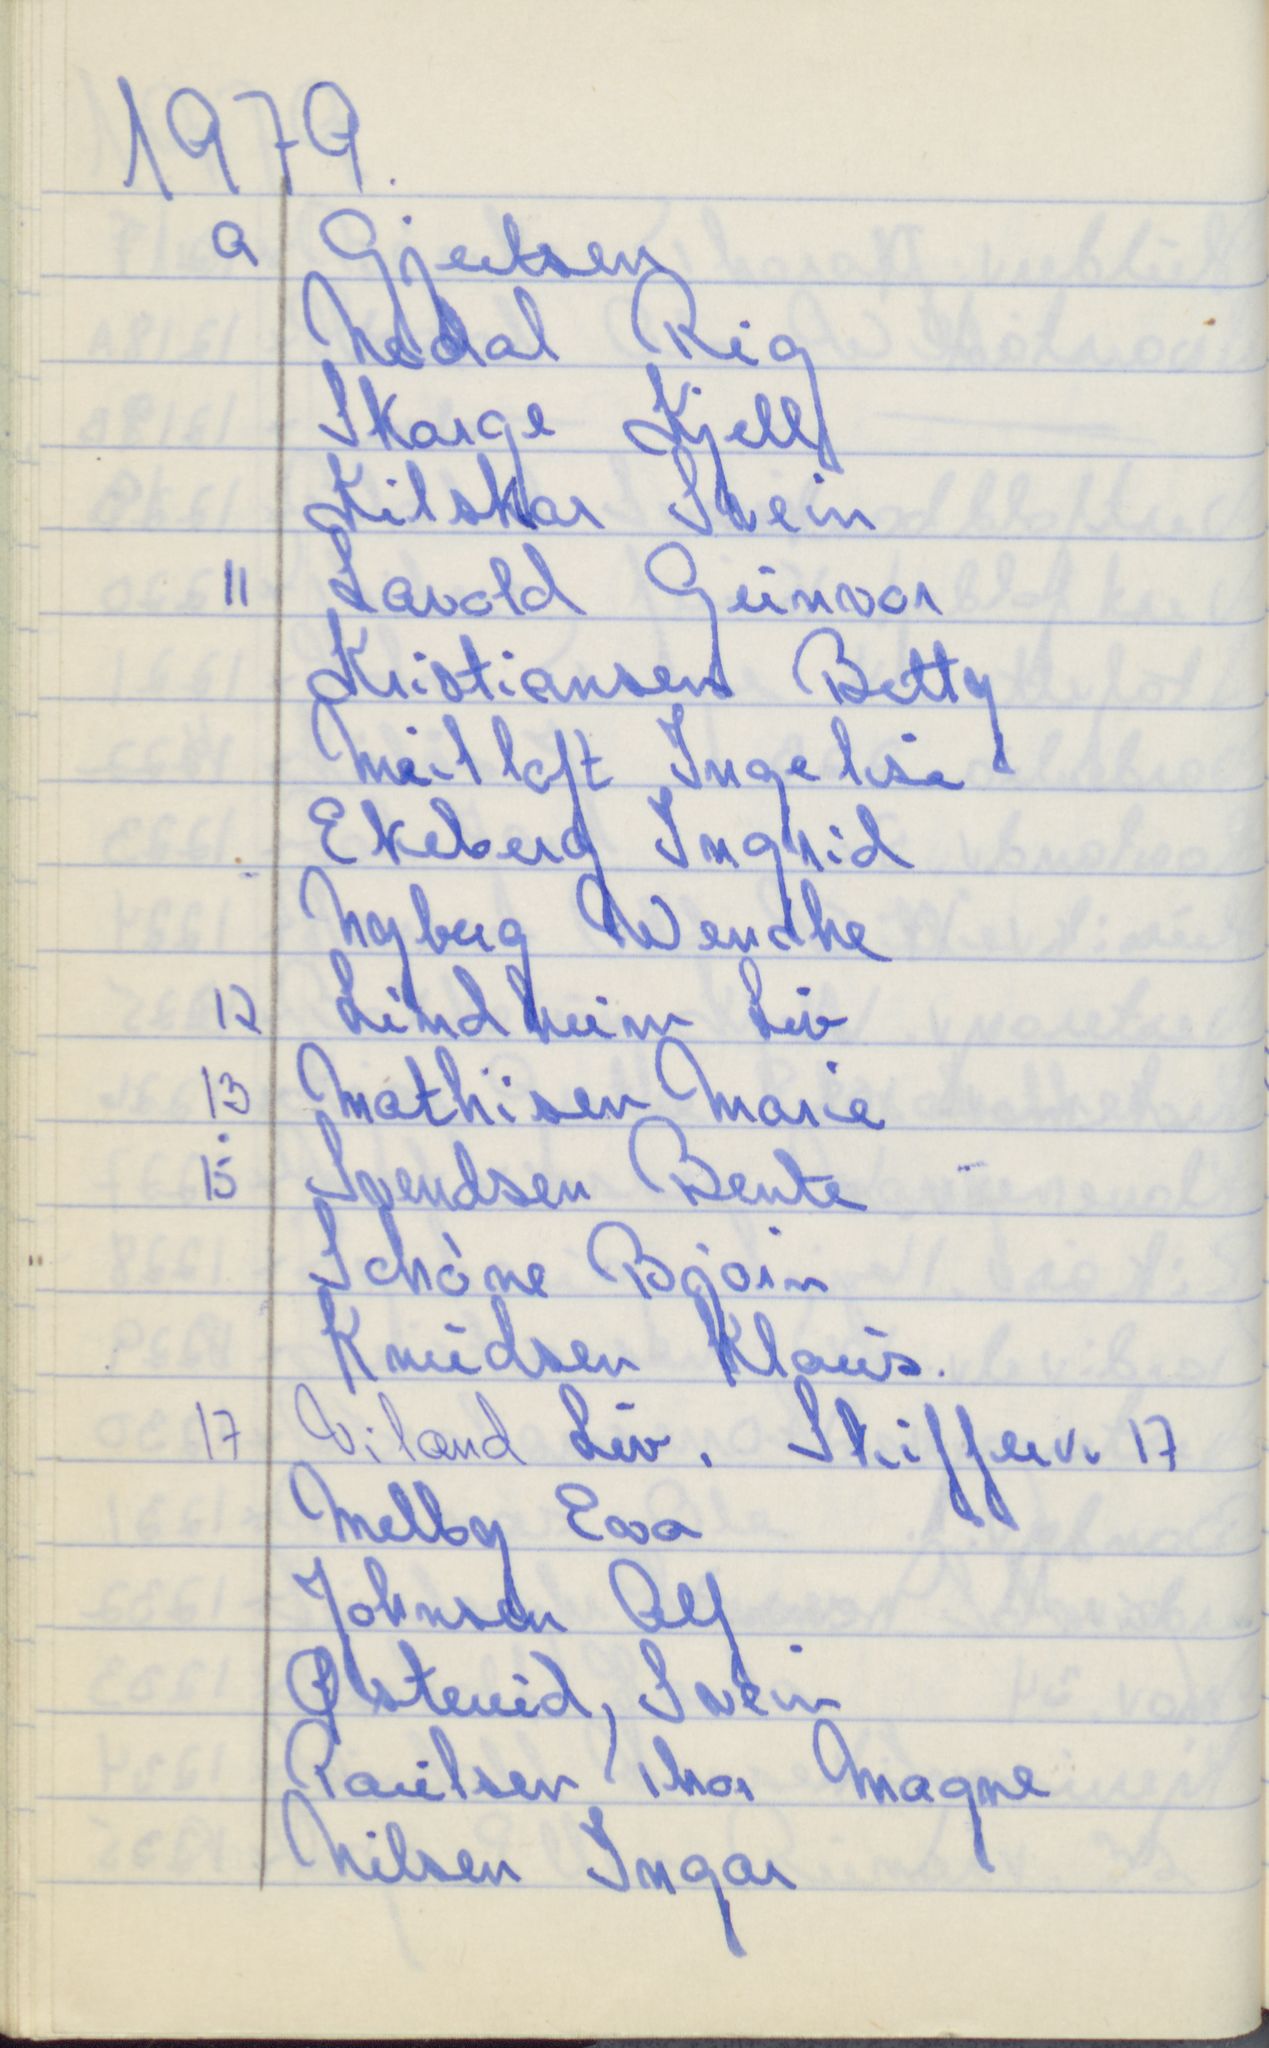 1979.
9 Gjertsen
Nedal Rig
Skarge Kjell
Kilskar Svein
11 Lavold Gunvor
Kristiansen Betty
Meitloft Ingelise
Ekeberg Ingrid
Nyberg Wenche
12 Lindheim Liv
13 Mathisen Marie
15 Svendsen Bente
Schöne Bjørn
Knudsen Klaus.
17 Viland Liv. Skifferv. 17
Melby Eva
Johnsen Alf
Østerud, Svein
Paulsen Thor Magne
Nilsen Ingar